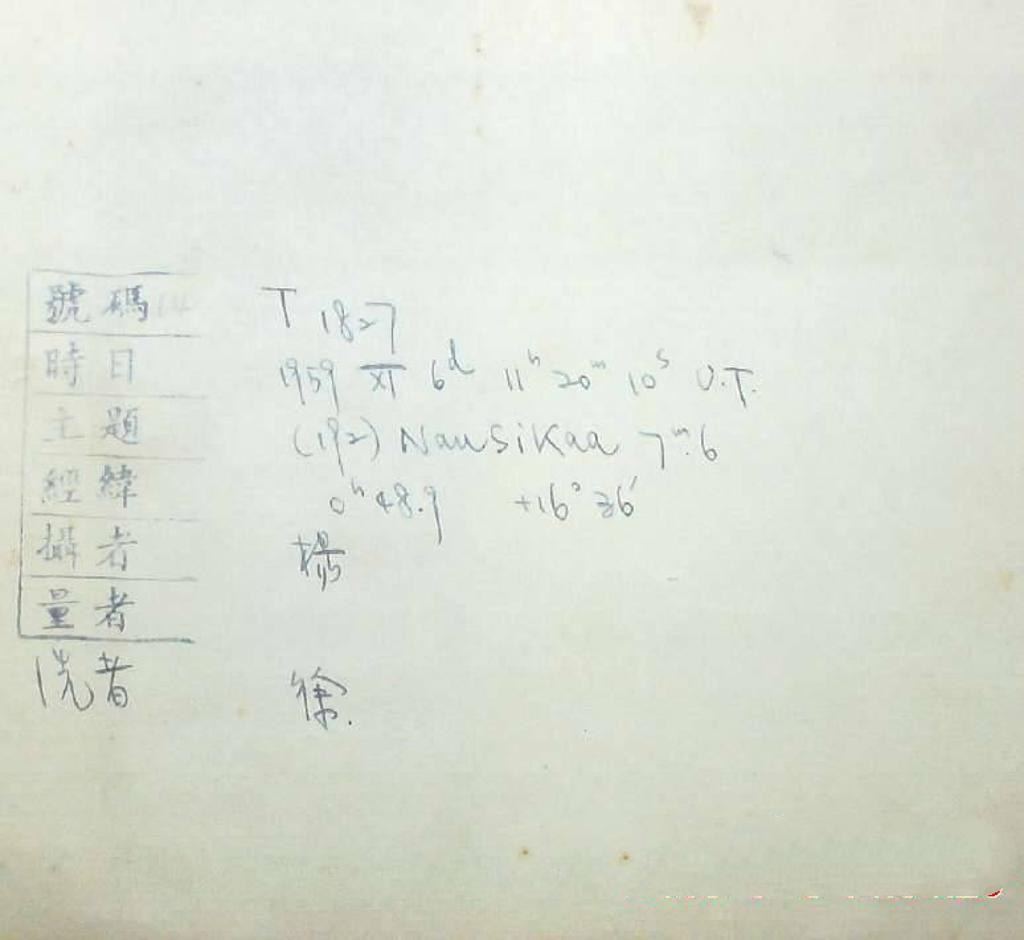 號碼 T 1827
時日 1959 XI 6ᵈ 11ʰ 20ᵐ 10ˢ U.T.
主題 (192) Nausikaa 7ᵐ.6
經緯 0ʰ 48.9 +16° 36′
攝者 楊
量者
洗者 徐.